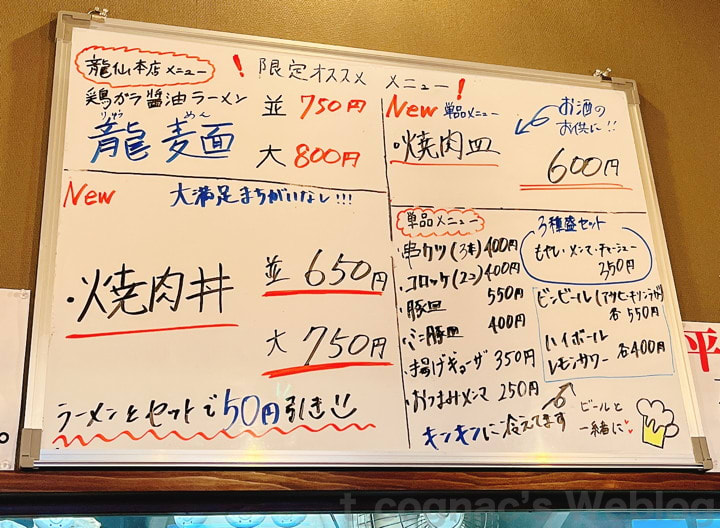 龍仙本店メニュー
！限定オススメ メニュー！
鶏ガラ醤油ラーメン
りゅう めん
龍麺
並 750円
大 800円
New 単品メニュー
お酒の
お供に!!
・焼肉皿
600円
New 大満足まちがいなし!!!
・焼肉丼
並 650円
大 750円
ラーメンとセットで50円引き
単品メニュー
・串カツ(3本) 400円
・コロッケ(2コ) 400円
・豚皿 550円
・ミニ豚皿 400円
・揚げギョーザ 350円
・おつまみメンマ 250円
キンキンに冷えてます
3種盛セット
もやし・メンマ・チャーシュー
350円
ビンビール(アサヒ・キリンラガー)
各550円
ハイボール
レモンサワー 各400円
ビールと
一緒に♥
平
。
t.cognac's Weblog